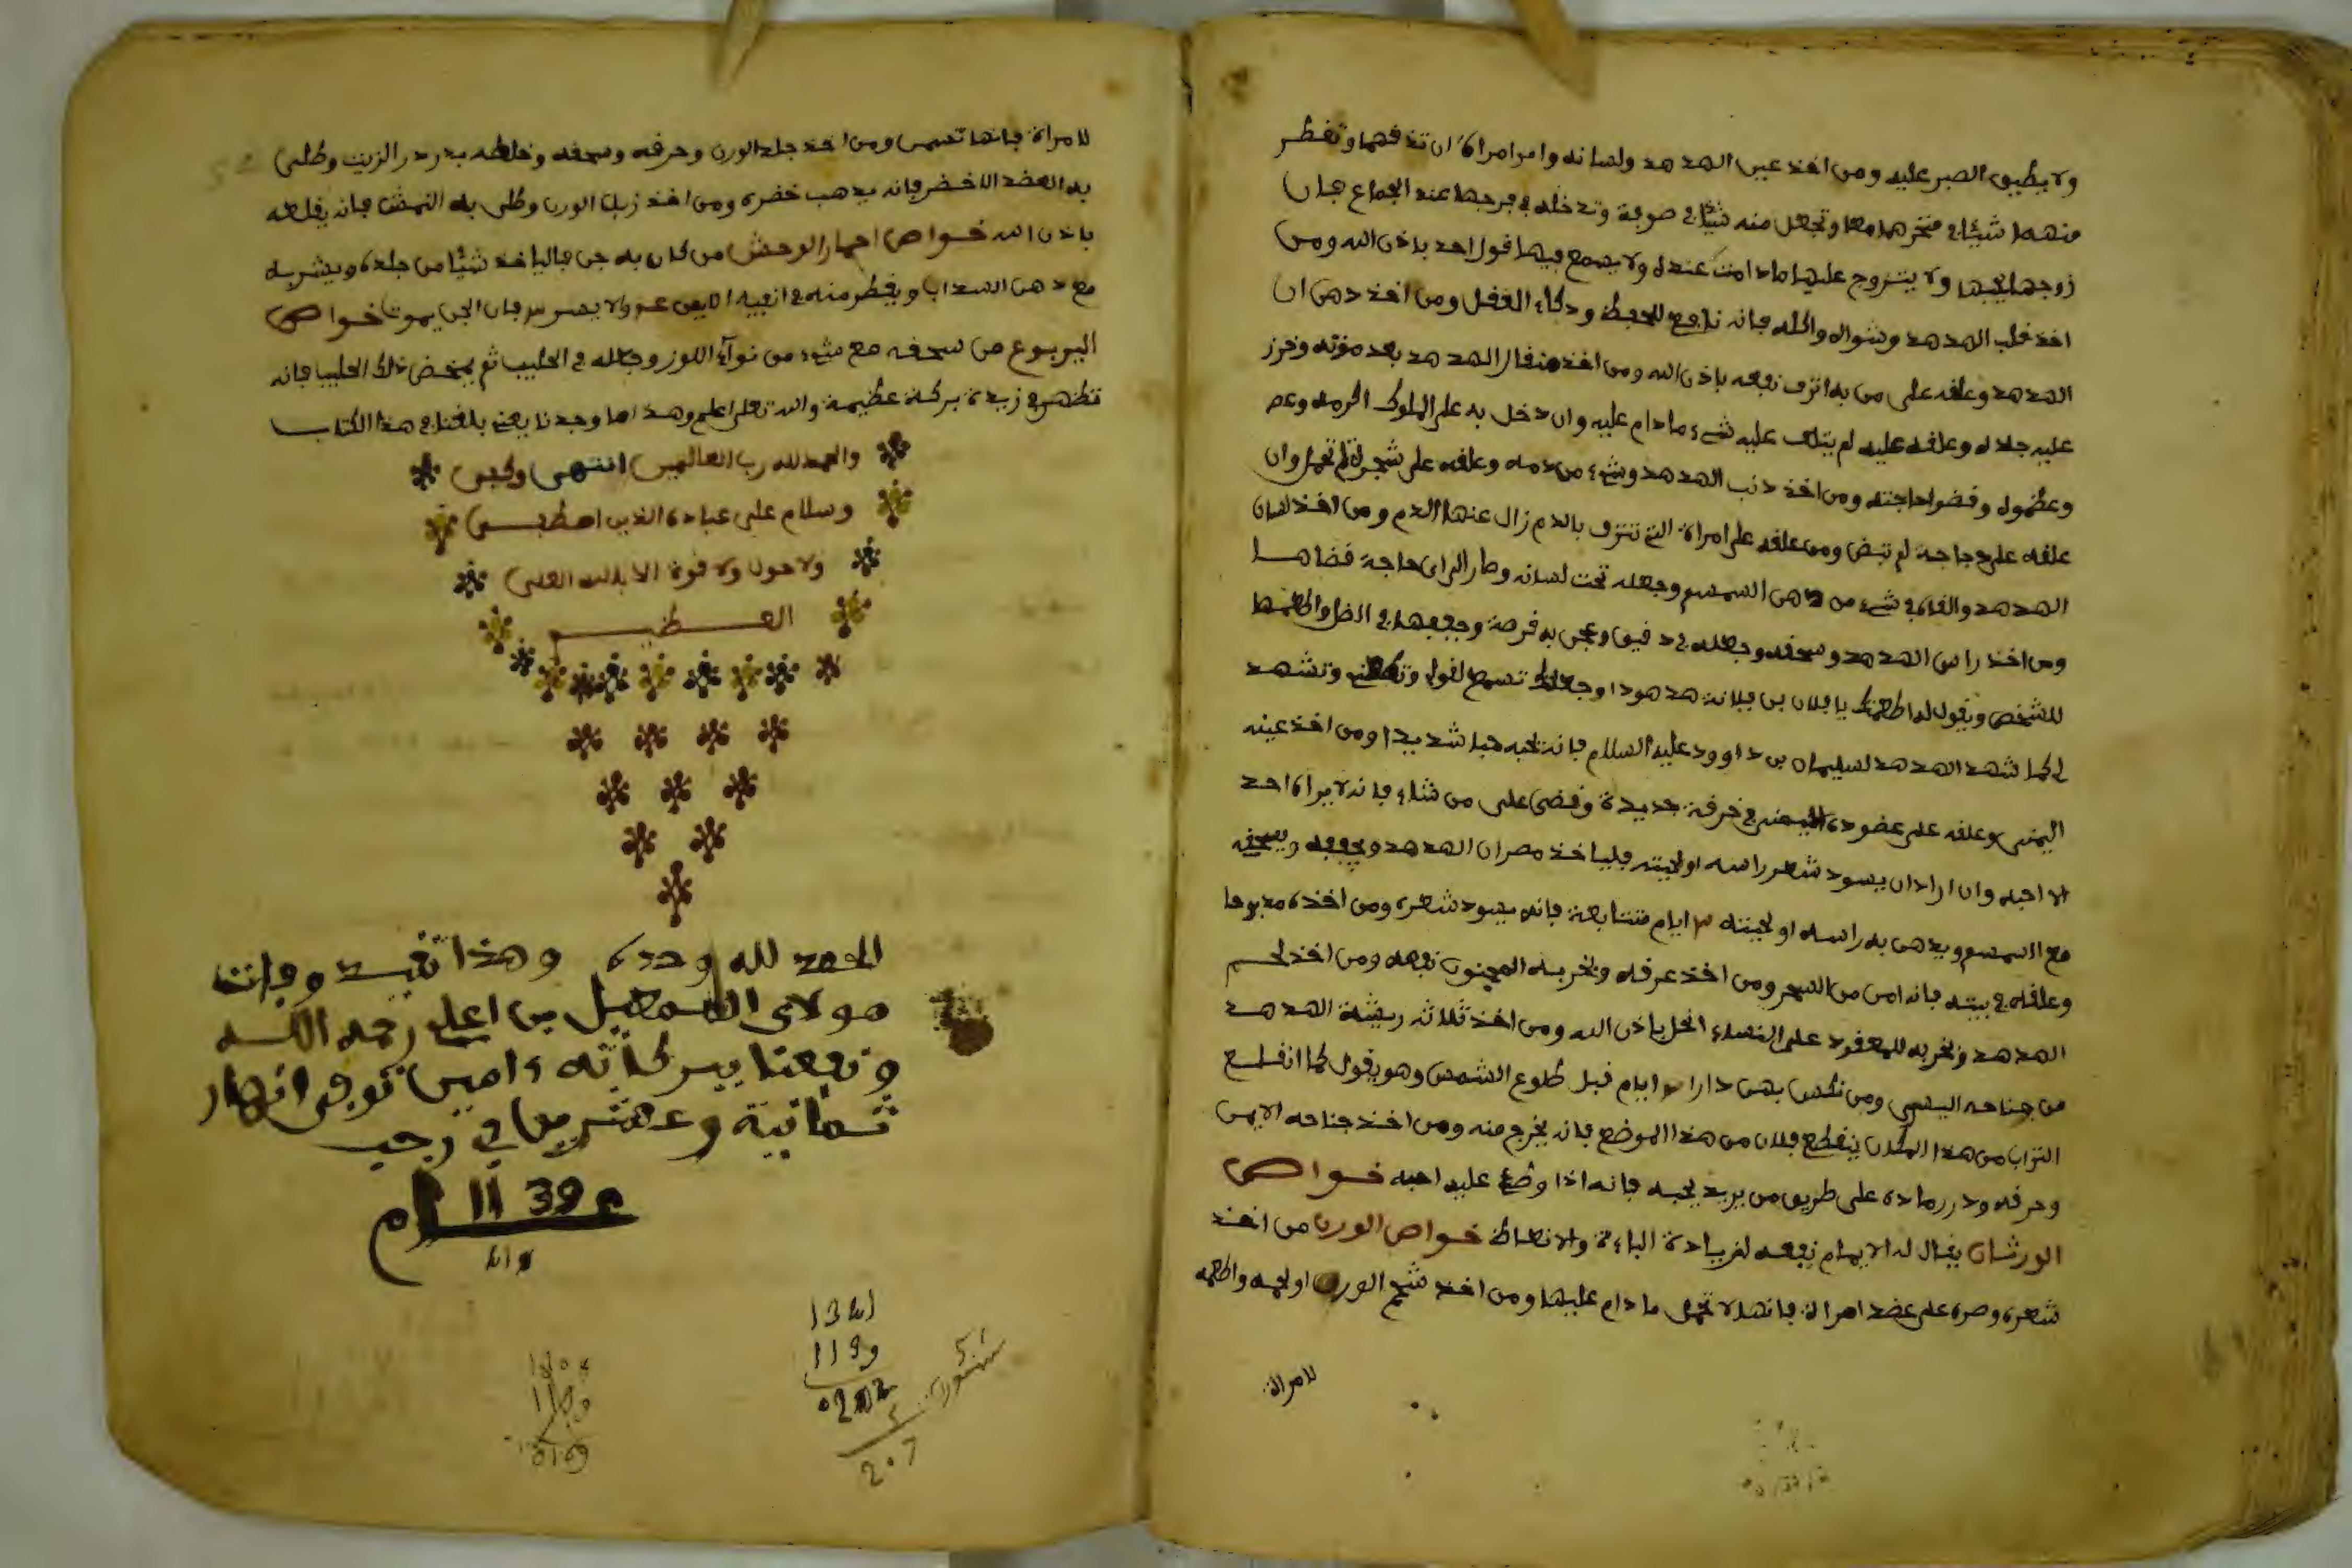 ولا يطيق الصبر عليه ومن اخذ عين الهدهد ولسانه وامر امراة ان تدقهما وتقطر
منهما شيئا في منخرهما معا وتجعل منه شيئا في صوفة وتدخله في فرجها عند الجماع فان
زوجها يحبها ولا يتزوج عليها ما دامت عنده ولا يسمع فيها قول احد باذن الله ومن
اخذ قلب الهدهد وشواه واكله فانه نافع للحفظ وذكاء العقل ومن اخذ دهن ان
الهدهد وعلقه على من به انزف نفعه باذن الله ومن اخذ منقار الهدهد بعد موته وخرز
عليه جلده وعلقه عليه لم يتلف عليه شيء ما دام عليه وان دخل به على الملوك اكرموه
وعظموه وقضوا حاجته ومن اخذ ذنب الهدهد وشيء من دمه وعلقه على شجرة لم تحمل وان
علقه على دجاجة لم تبض ومن علقه على امراة التي تنزف بالدم زال عنها الدم ومن اخذ لسان
الهدهد والقاه في شيء من دهن السمسم وجعله تحت لسانه وطار الى اي حاجة قضاها
ومن اخذ راس الهدهد وسحقه وجعله في دقيق وعجن به قرصة وجففها في الظل واطعمها
للشخص ويقول له اطعمتك يا فلان بن فلانة هدهودا وجعلتك تسمع لقولي وتشهد
لي كما شهد الهدهد لسليمان بن داوود عليه السلام فانه يحبه حبا شديدا ومن اخذ عينه
اليمنى وعلقه على عضوده في خرقة جديدة وقضى على من شاء فانه لا يراه احد
الا احبه وان اراد ان يسود شعر راسه او لحيته فلياخذ مصران الهدهد ويجففه ويسحقه
مع السمسم ويدهن به راسه او لحيته ٣ ايام متتابعة فانه يسود شعره ومن اخذه مذبوحا
وعلقه في بيته فانه امن من السحر ومن اخذ عرفه وبخر به المجنون نفعه ومن اخذ لحم
الهدهد وبخر به للمعقود على النساء انحل باذن الله ومن اخذ ثلاثه ريشة الهدهد
من جناحه اليسرى ومن نكس بهن دارا ٣ ايام قبل طلوع الشمس وهو يقول كما انقلع
التراب من هذا المكان ينقطع فلان من هذا الموضع فانه يخرج منه ومن اخذ جناحه الايمن
وحرقه وذر رماده على طريق من يريد يحبه فانه اذا وضع عليه احبه خواص
الورشان يقال له الايمام نفعه لزيادة الباءة والانعاظ خواص الورن من اخذ
شعره وصره على عضد امراة فانها لا تحمل ما دام عليها ومن اخذ شحم الورن او لحمه واطعمه
للامراة
للامراة فانها تسمن ومن اخذ جلد الورن وحرقه وسحقه وخلطه بدردر الزيت وطلى
به العضد الاخضر فانه يذهب خضره ومن اخذ زبل الورن وطلى به النمش فانه يقلعه
باذن الله خواص احمار الوحش من كان به جن فالياخذ شيئا من جلده ويشربه
مع دهن السداب ويقطر منه في انفيه الايمن والايسر فان الجن يموت خواص
اليربوع من سحقه مع شيء من نواء اللوز وجعله في الحليب ثم يمخض ذلك الحليب فانه
تظهر في زبدة بركة عظيمة والله تعلى اعلم وهذا ما وجدنا يعني بلغنا في هذا الكتاب
والحمد لله رب العالمين انتهى وكفى
وسلام على عباده الذين اصطفى
ولا حول ولا قوة الا بالله العلي
العظيم
الحمد لله وحده وهذا تقيد وفات
مولاي اسمعيل بن اعلي رحمه الله
ونفعنا ببركاته ءامين توفى انهار
ثمانية وعشرين في رجب
1139 ام
119
207